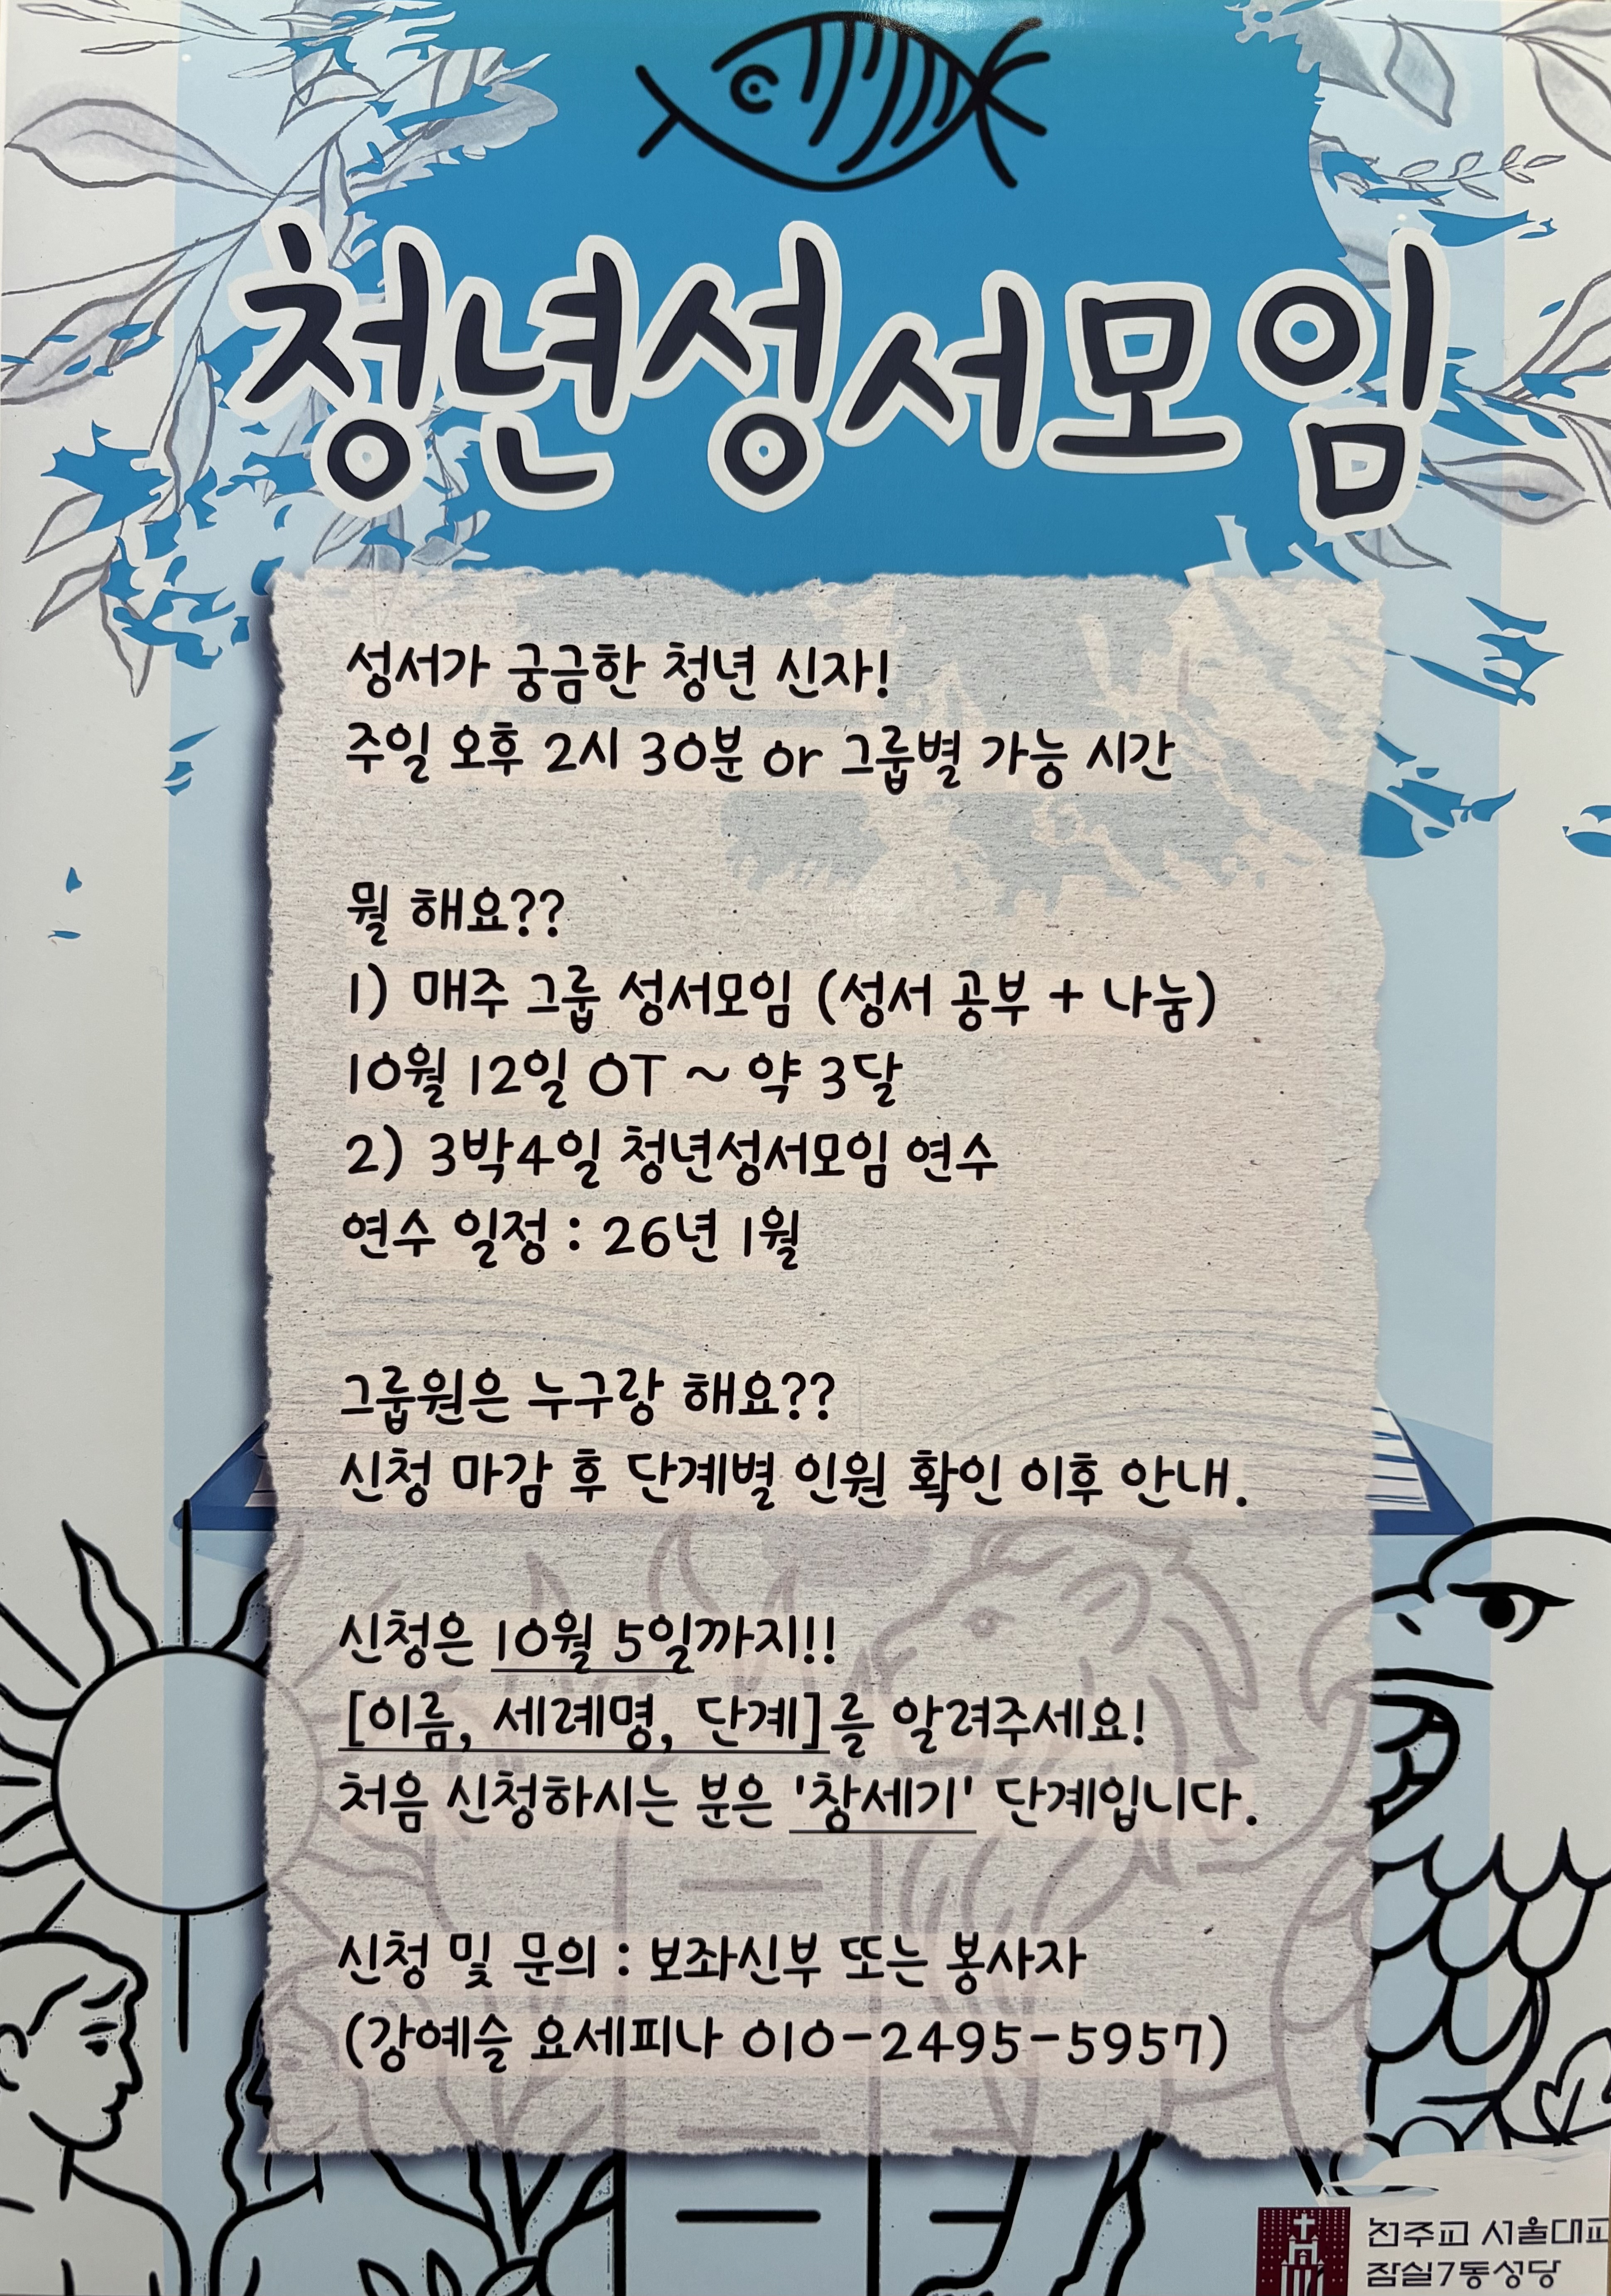 청년성서모임
성서가 궁금한 청년 신자!
주일 오후 2시 30분 or 그룹별 가능 시간
뭘 해요??
1) 매주 그룹 성서모임 (성서 공부 + 나눔)
10월 12일 OT ~ 약 3달
2) 3박4일 청년성서모임 연수
연수 일정 : 26년 1월
그룹원은 누구랑 해요??
신청 마감 후 단계별 인원 확인 이후 안내.
신청은 10월 5일까지!!
[이름, 세례명, 단계]를 알려주세요!
처음 신청하시는 분은 '창세기' 단계입니다.
신청 및 문의 : 보좌신부 또는 봉사자
(강예슬 요세피나 010-2495-5957)
천주교 서울대교
잠실7동성당